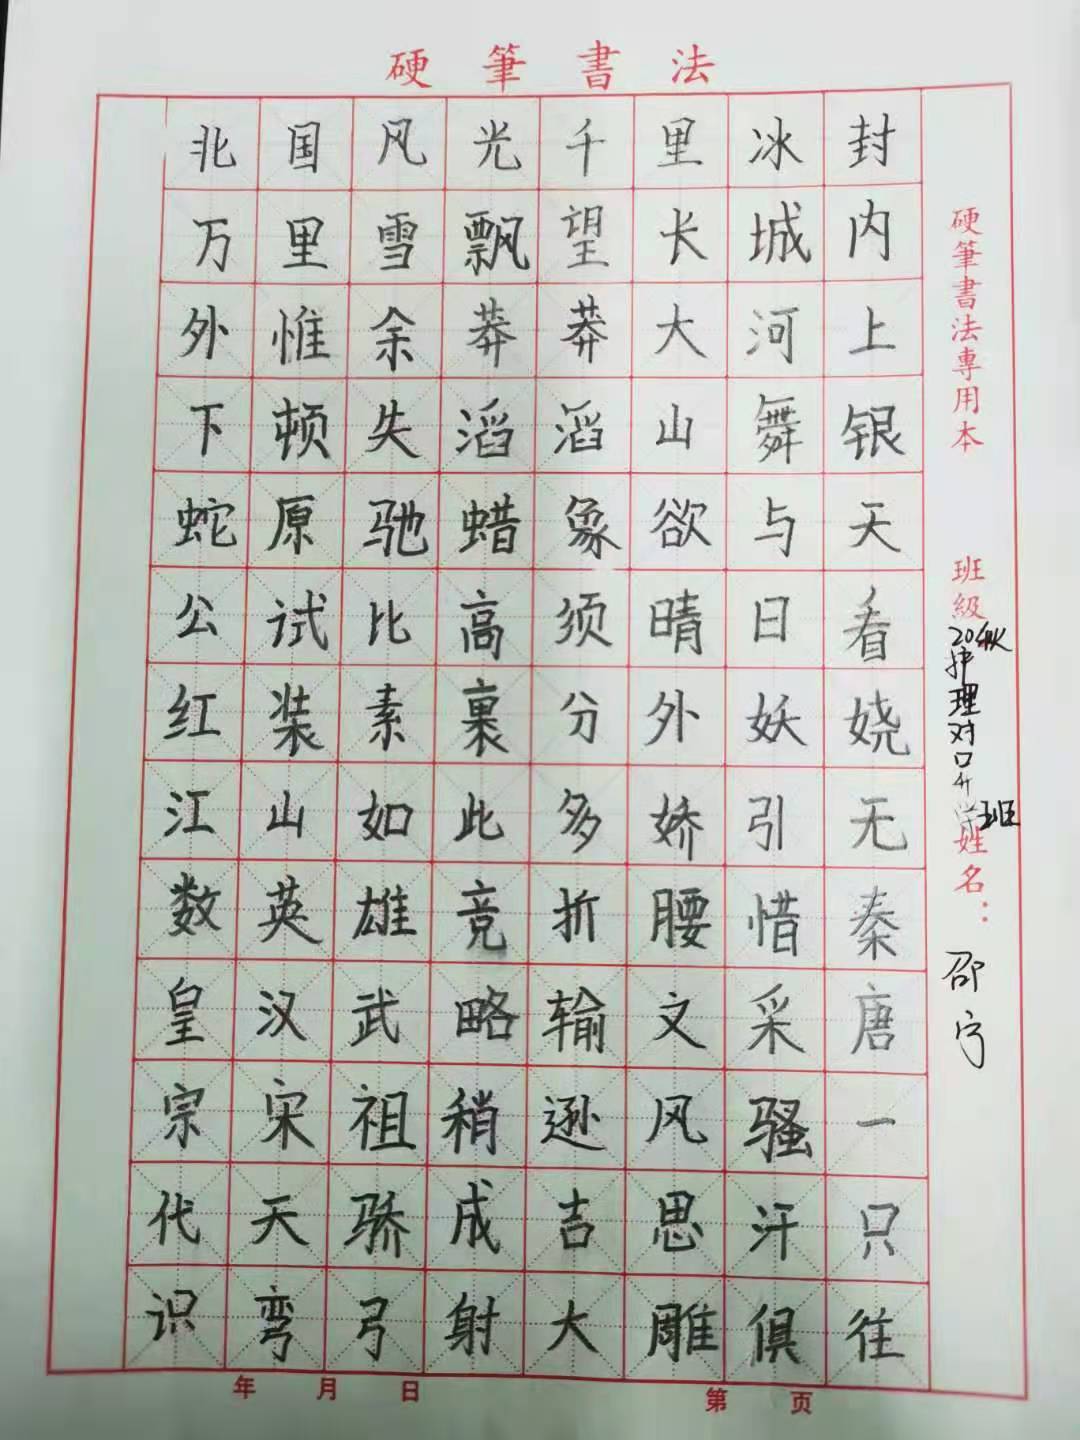 硬筆書法
北国风光千里冰封
万里雪飘望长城内
外惟余莽莽大河上
下顿失滔滔山舞银
蛇原驰蜡象欲与天
公试比高须晴日看
红装素裹分外妖娆
江山如此多娇引无
数英雄竞折腰惜秦
皇汉武略输文采唐
宗宋祖稍逊风骚一
代天骄成吉思汗只
识弯弓射大雕俱往
硬筆書法專用本
班級 20秋护理对口升学班
姓名：邵宁
年 月 日
第 页